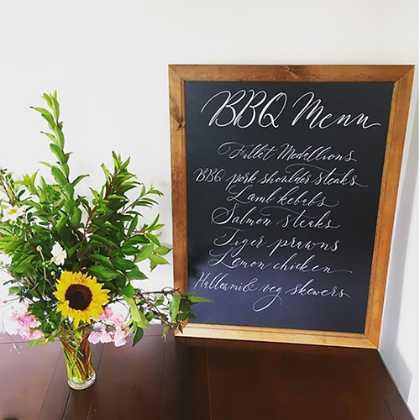 BBQ Menu
Fillet Medallions
BBQ pork shoulder steaks
Lamb kebabs
Salmon steaks
Tiger prawns
Lemon chicken
Halloumi & veg skewers